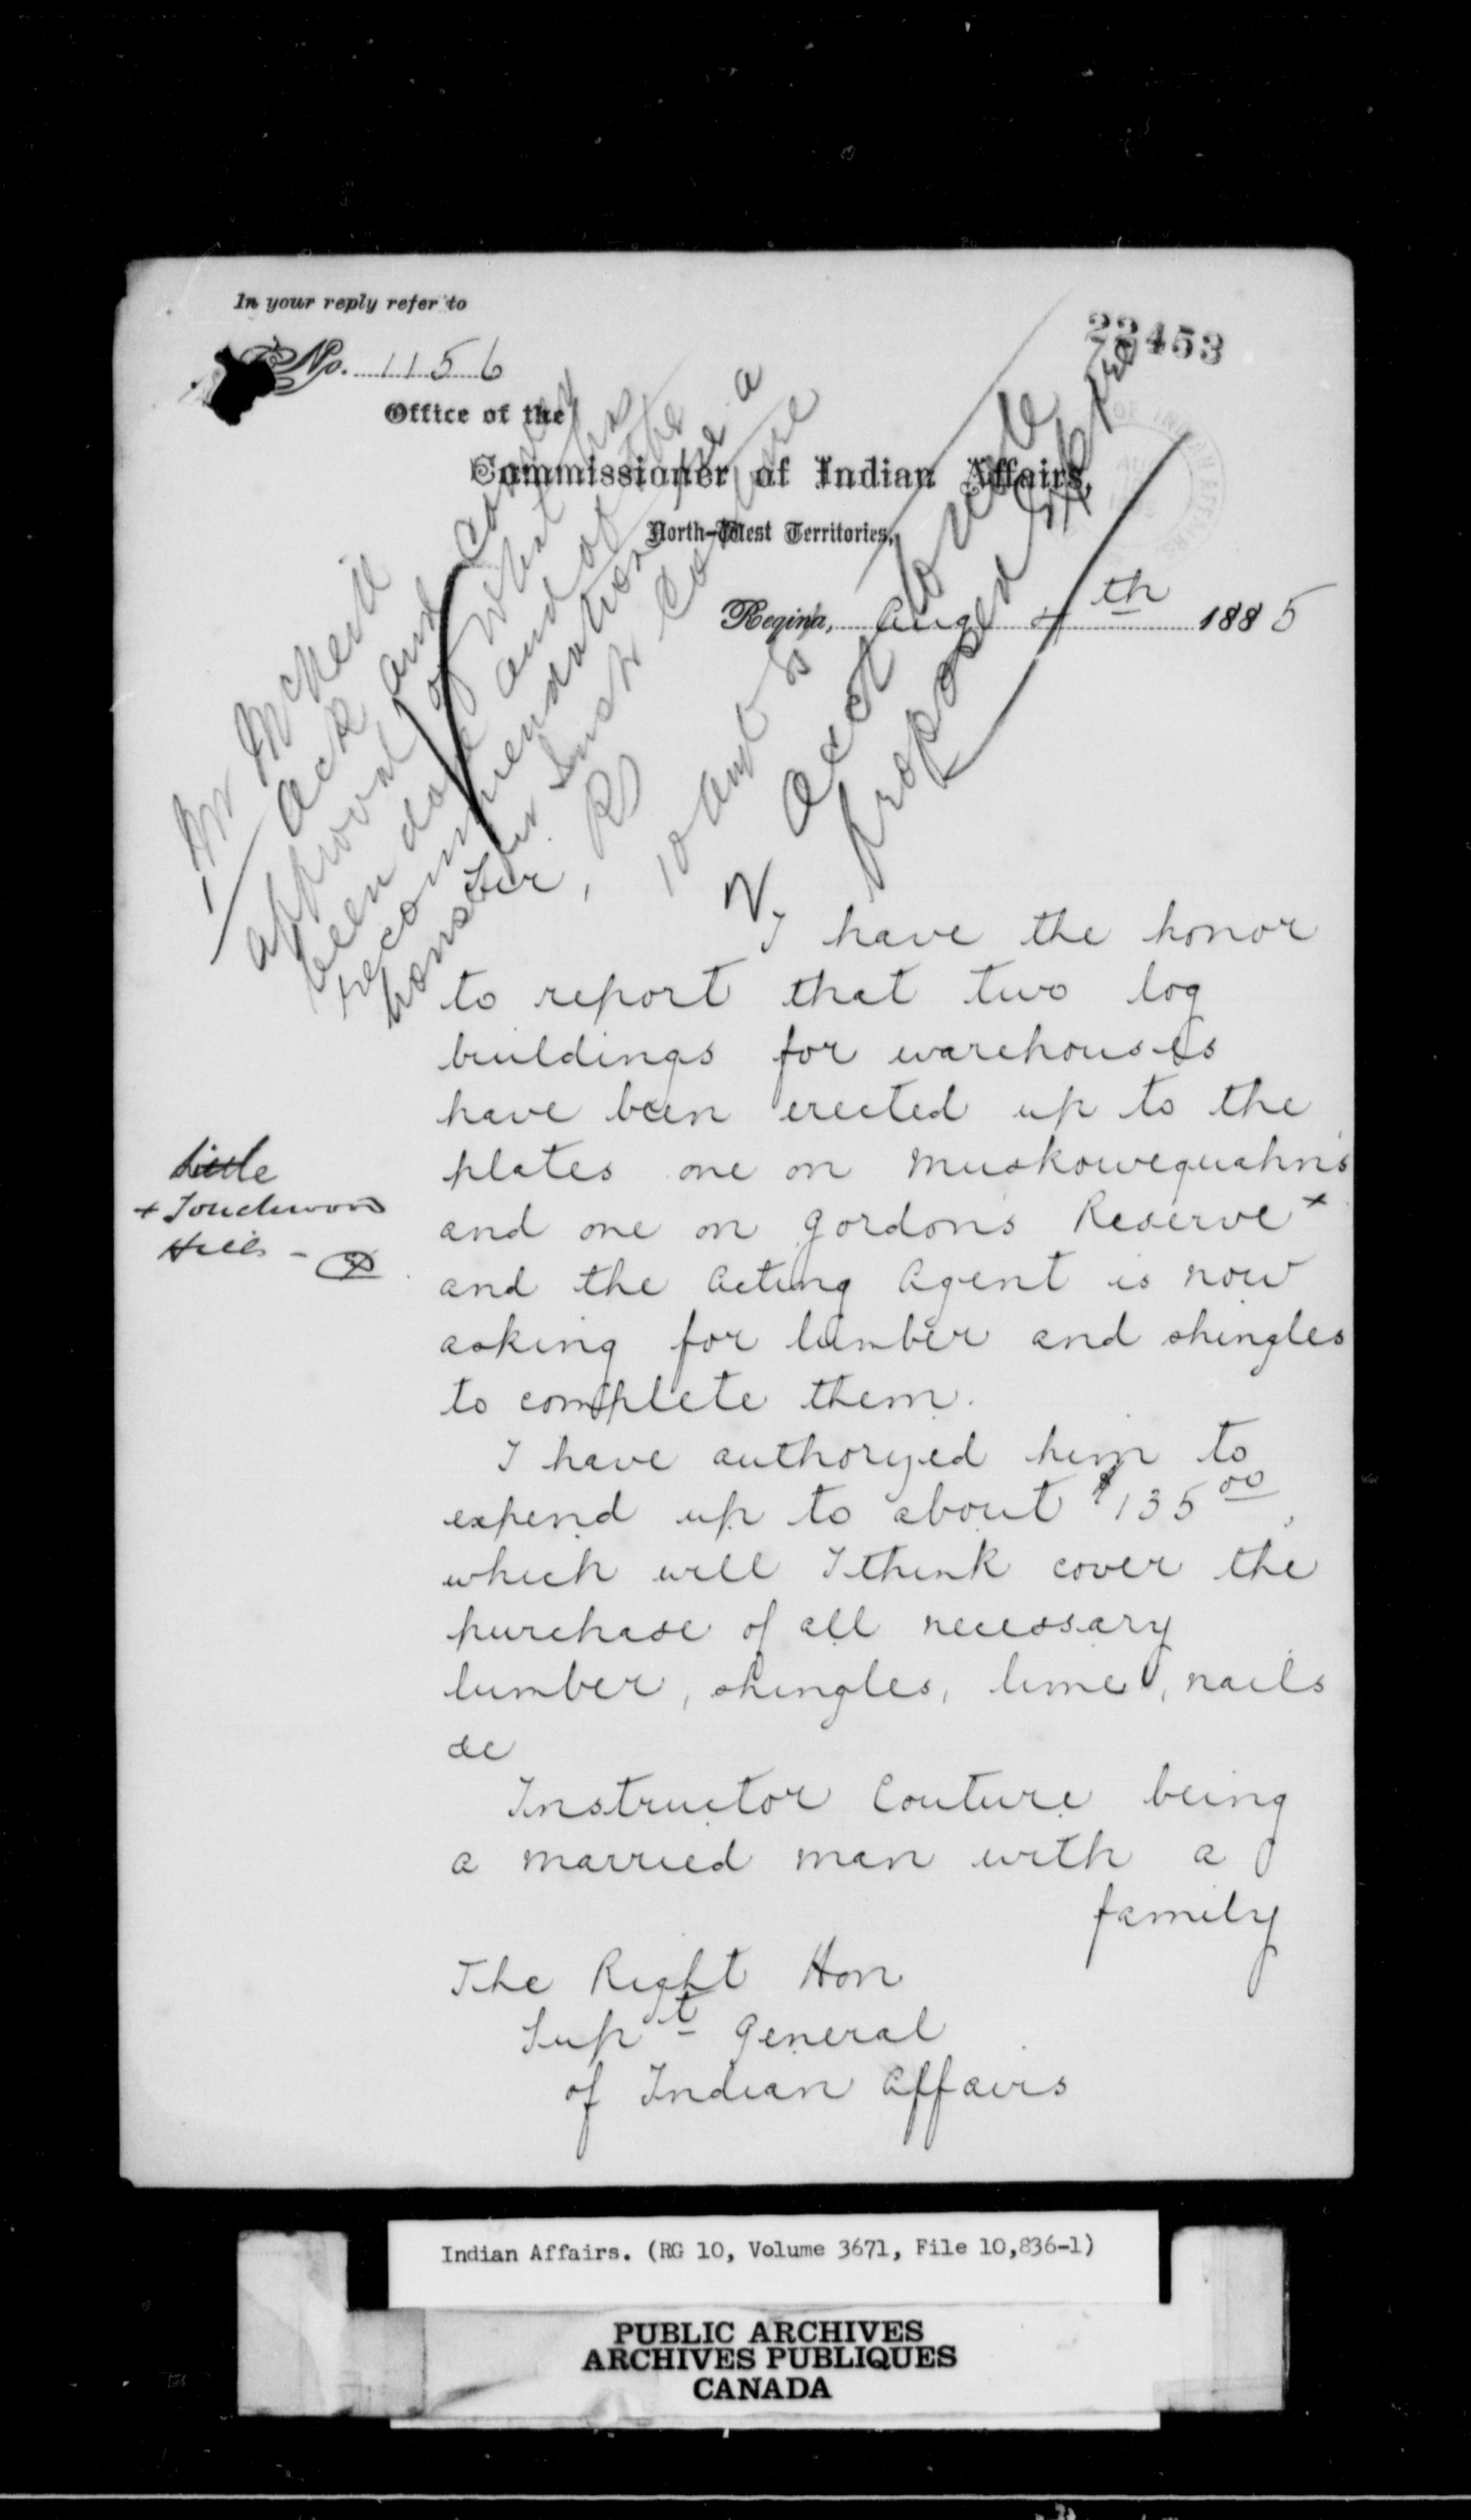 In your reply refer to
No. 1156
22453
Office of the
Commissioner of Indian Affairs,
North-West Territories,
Regina, Aug 4th 1885
Mr McNeill
Ack and convey
approval of what has
been done and of the
recommendation re a
house for Instr Couture
10 Aug 85
Sir,
I have the honor
to report that two log
buildings for warehouses
have been erected up to the
plates one on Muskowequahn's
and one on Gordons Reserve x
Little
+ Touchwood
Hills -
and the Acting Agent is now
asking for lumber and shingles
to complete them.
I have authorized him to
expend up to about $135 00,
which will I think cover the
purchase of all necessary
lumber, shingles, lime, nails
&c
Instructor Couture being
a married man with a
family
The Right Hon
Supt General
of Indian Affairs
Indian Affairs. (RG 10, Volume 3671, File 10,836-1)
PUBLIC ARCHIVES
ARCHIVES PUBLIQUES
CANADA